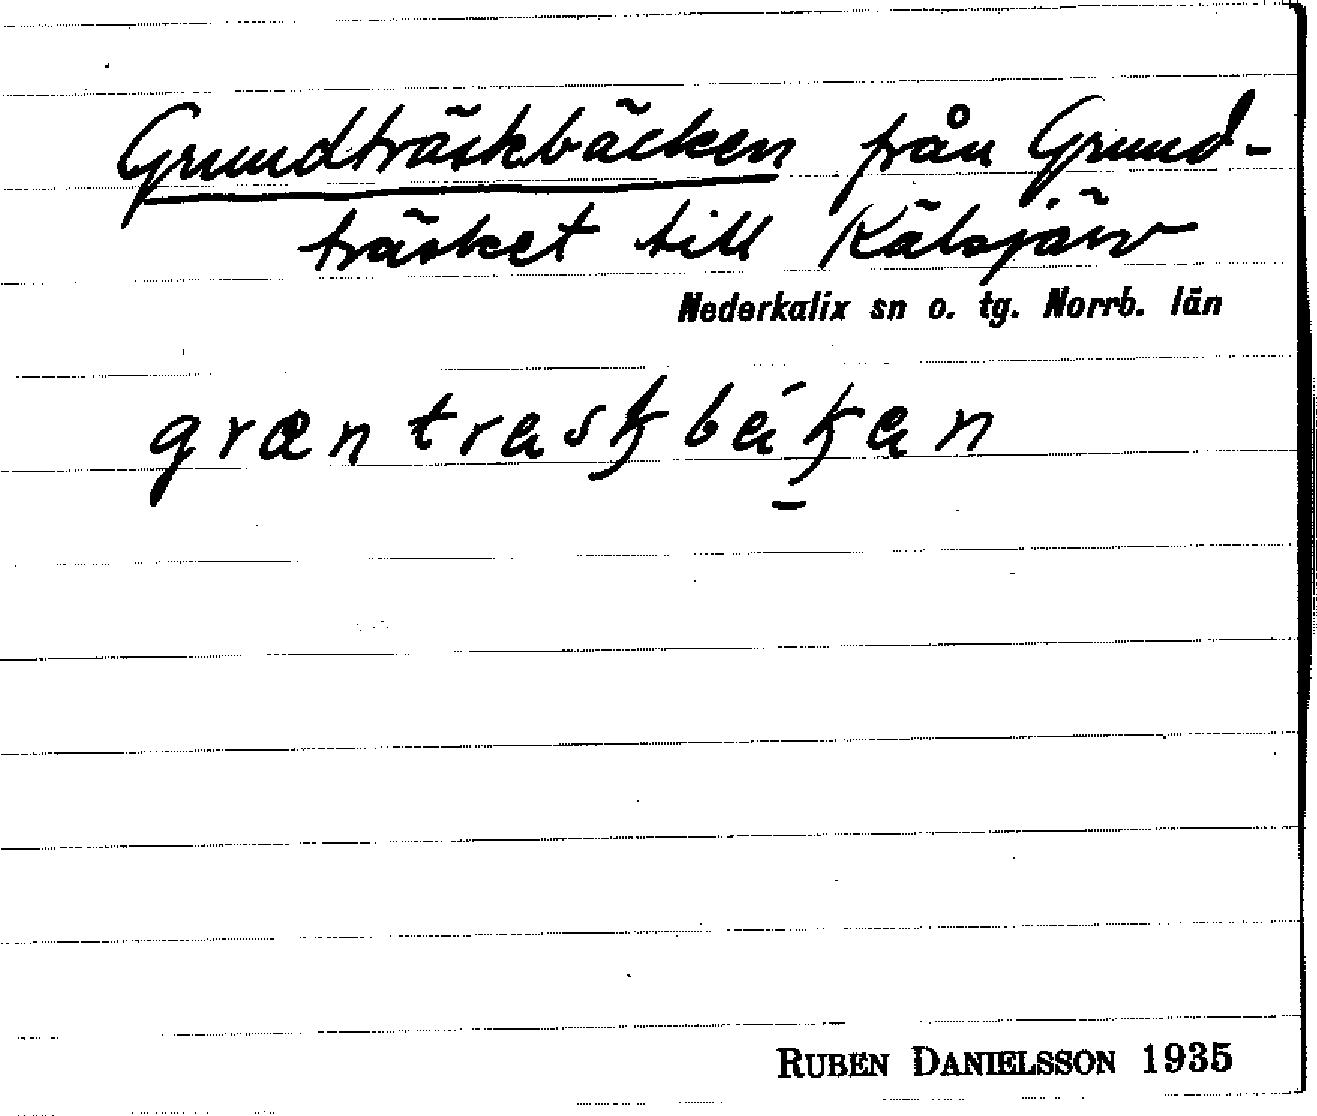 Grundträskbäcken från Grund-
träsket till Kälsjärv
Nederkalix sn o. tg. Norrb. län
græntraskbákan
RUBEN DANIELSSON 1935